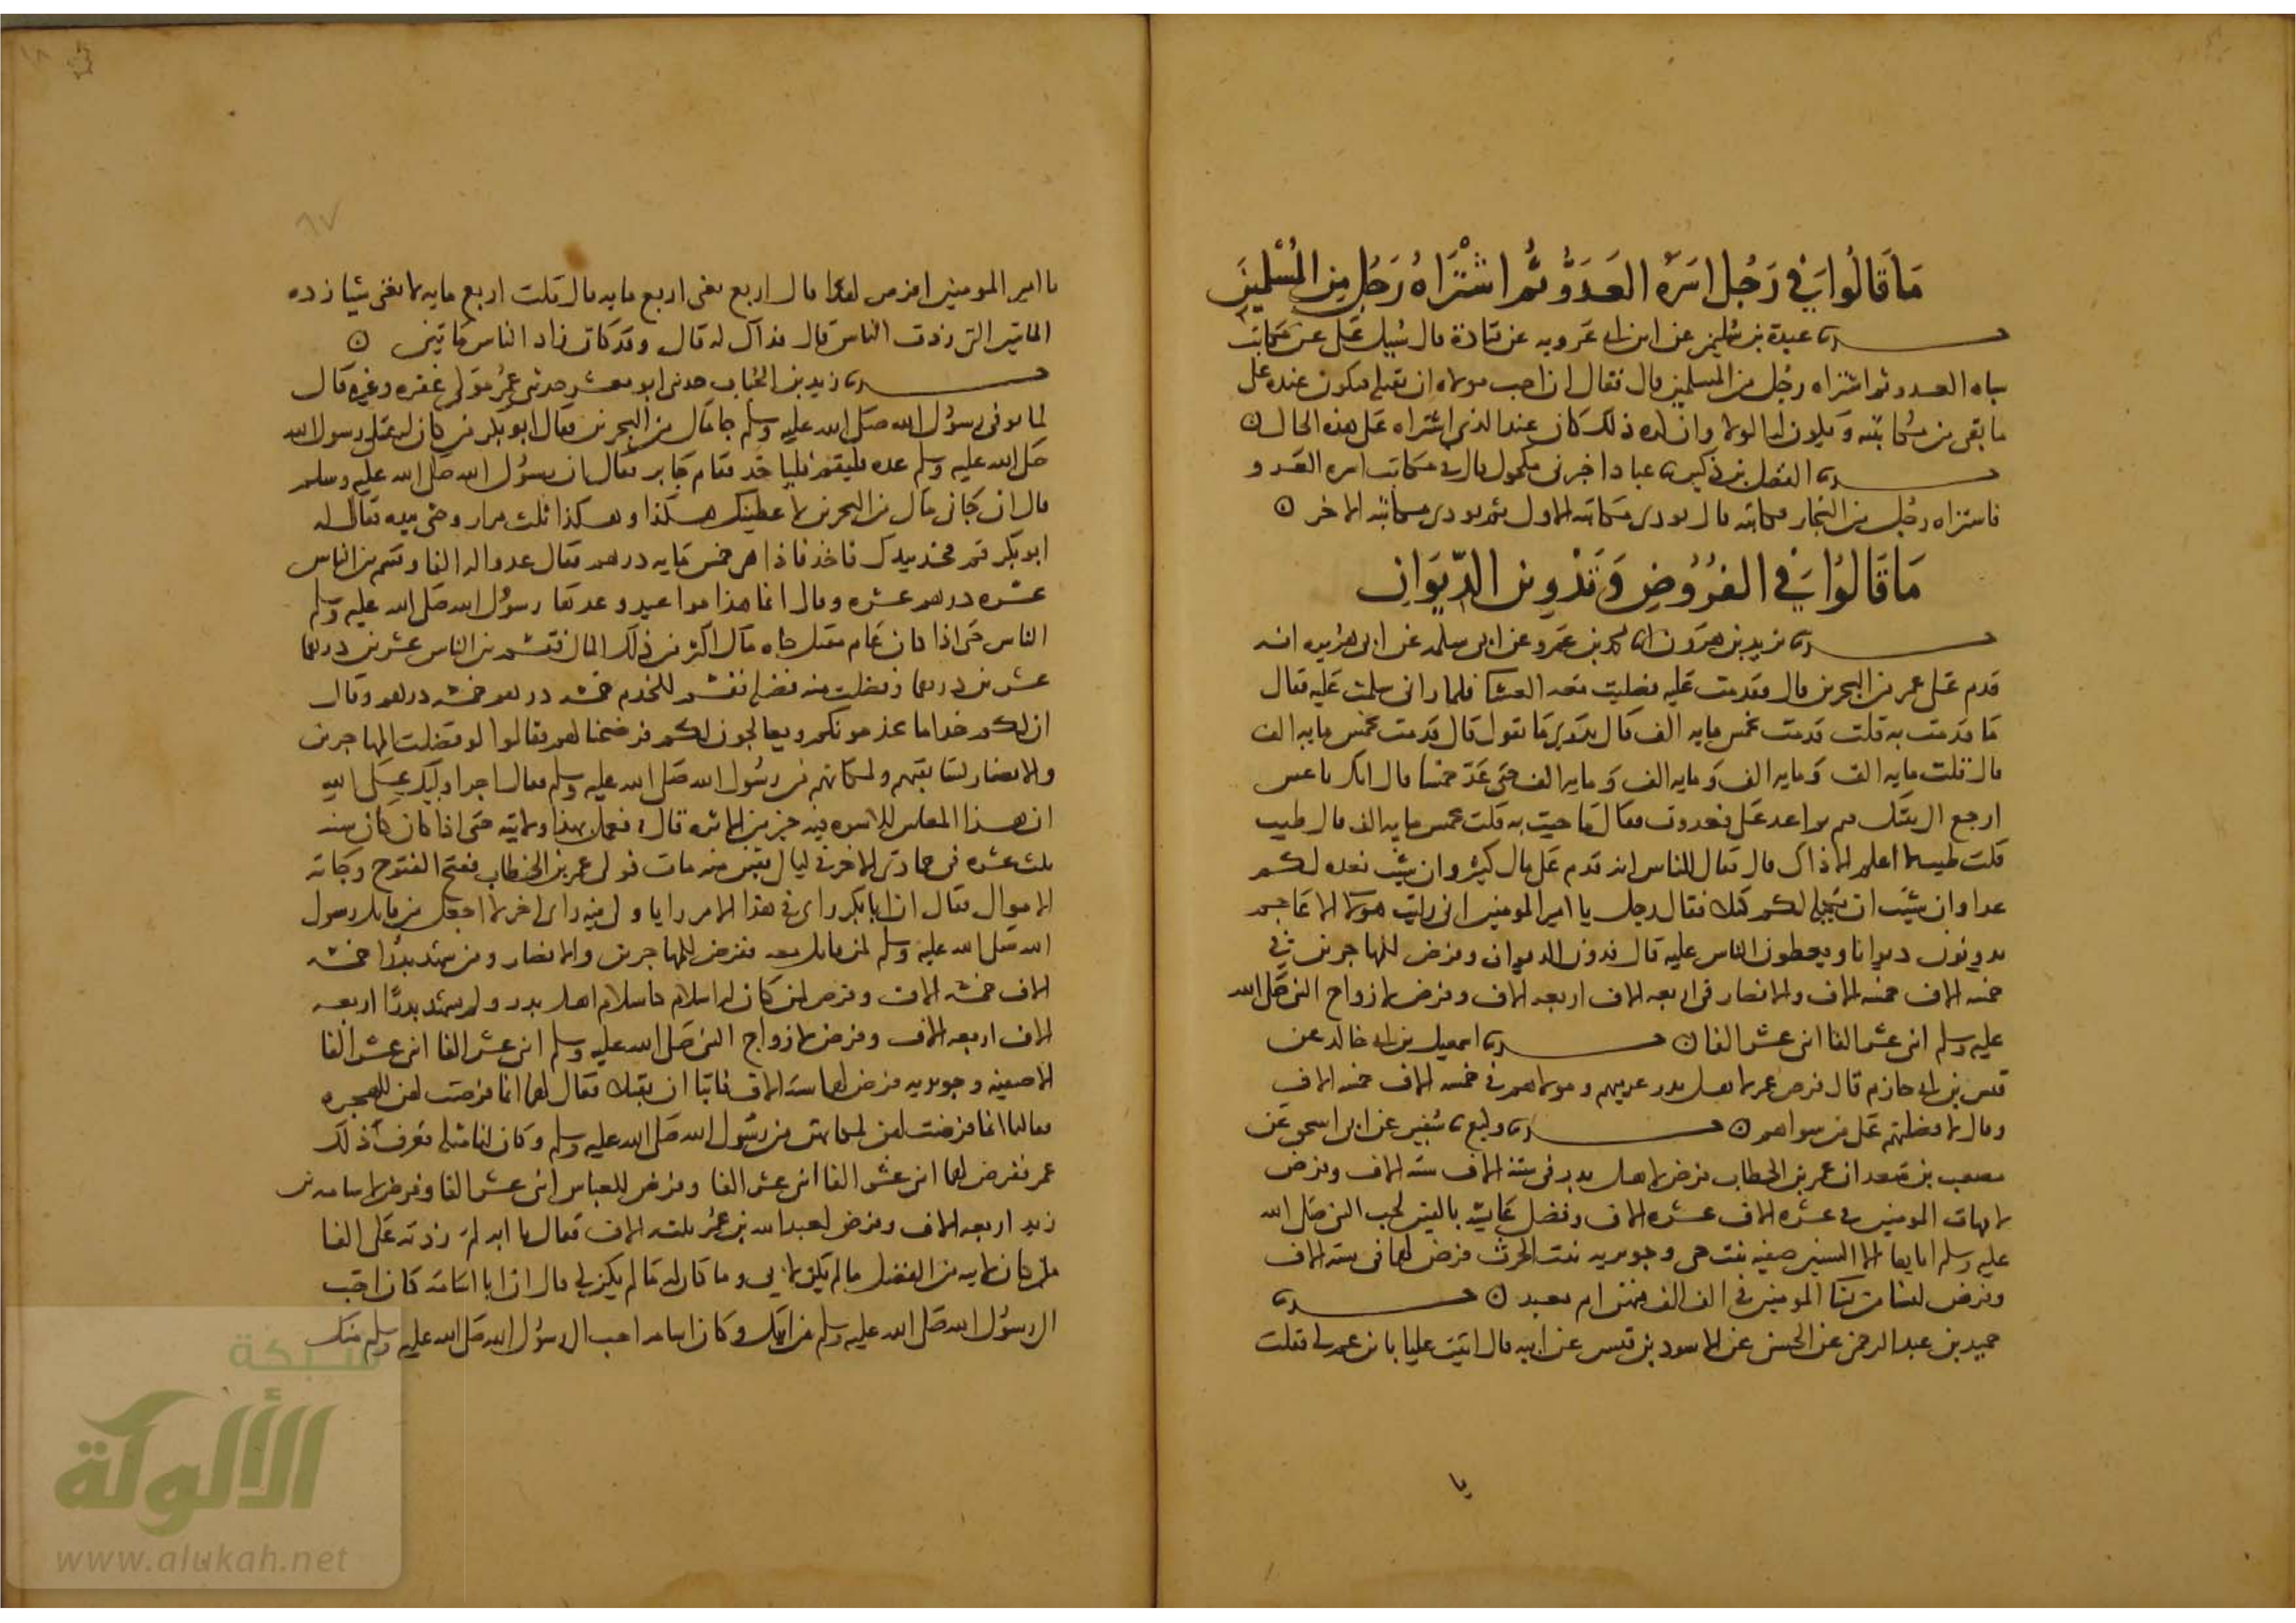 ما قالوا في رجل اسره العدو ثم اشتراه رجل من المسلمين
حدثنا عبدة بن سليمن عن ابن ابي عروبه عن قتادة قال سيل علي عن مكاتب
سباه العدو ثم اشتراه رجل من المسلمين قال فقال ان احب مولاه ان يفكه فيكون عنده على
ما بقي من مكاتبته ويكون له الولا وان كره ذلك كان عند الذي اشتراه على هذه الحال
حدثنا الفضل بن دكين نا عباد اخبرني مكحول قال في مكاتب اسره العدو
فاشتراه رجل من التجار فكاتبه قال يودي مكاتبه الاول ثم يودي مكاتبة الاخر
ما قالوا في الفروض وتدوين الديوان
حدثنا يزيد بن هرون انا محمد بن عمرو عن ابي سلمه عن ابي هريره انه
قدم على عمر من البحرين قال فقدمت عليه فصليت معه العشا فلما راني سلمت عليه فقال
ما قدمت به قلت قدمت بخمس مايه الف قال تدري ما تقول قال قدمت بخمس مايه الف
قال قلت مايه الف ومايه الف ومايه الف حتى عد خمسا قال انك ناعس
ارجع الى بيتك فنم ثم اغد علي فغدوت فقال ما جيت به قلت بخمس مايه الف قال طيب
قلت طيب لا اعلم الا ذاك قال فقال للناس انه قدم علي مال كثير وان شيتم نعده لكم
عدا وان شيتم ان نكيله لكم كيلا فقال رجل يا امير المومنين اني رايت هولا الاعاجم
يدونون ديوانا ويعطون الناس عليه قال فدون الديوان وفرض للمهاجرين في
خمسه الاف خمسه الاف وللانصار في اربعه الاف اربعه الاف وفرض لازواج النبي صلى الله
عليه وسلم اثني عشر الفا اثني عشر الفا حدثنا اسمعيل بن ابي خالد عن
قيس بن ابي حازم قال فرض عمر لاهل بدر عربيهم ومولاهم في خمسه الاف خمسه الاف
وقال لافضلنهم على من سواهم حدثنا وكيع نا سفين عن ابي اسحق عن
مصعب بن سعد ان عمر بن الخطاب فرض لاهل بدر في ستة الاف سته الاف وفرض
لامهات المومنين في عشره الاف عشره الاف وفضل عايشة بالفين لحب النبي صلى الله
عليه وسلم اياها الا السبيتين صفيه بنت حي وجويريه بنت الحرث فرض لهما في سته الاف
وفرض لنسا من نسا المومنين في الف الف منهن ام عبد حدثنا
حميد بن عبد الرحمن عن الحسن عن الاسود بن قيس عن ابيه قال اتيت عليا فقلت
يا
٦٧
يا امير المومنين افرض لهذا قال اربع يعني اربع مايه قال قلت اربع مايه لا تغني شيا زده
المايتين التي زدت الناس قال فذاك له قال وقد كان زاد الناس مايتين
حدثنا زيد بن الحباب حدثني ابو معشر حدثني عمر مولى غفره وغيره قال
لما توفي رسول الله صلى الله عليه وسلم جا مال من البحرين فقال ابو بكر من كان له على رسول الله
صلى الله عليه وسلم عده فليقم فلياخذ فقام جابر فقال ان رسول الله صلى الله عليه وسلم
قال ان جاني مال من البحرين لاعطينك هكذا وهكذا ثلث مرار وحثى بيده فقال له
ابو بكر قم فخذ بيدك فاخذ فاذا هي خمس مايه درهم فقال عدوا له الفا وقسم بين الناس
عشره درهم عشره وقال انما هذه مواعيد وعدها رسول الله صلى الله عليه وسلم
الناس حتى اذا كان عام مقبل جاه مال اكثر من ذلك المال فقسم بين الناس عشرين درهما
عشرين درهما وفضلت منه فضله فقسم للخدم خمسه درهم خمسه درهم وقال
ان لكم خداما يخدمونكم ويعالجون لكم فرضخنا لهم فقالوا لو فضلت المهاجرين
والانصار لسابقتهم ولمكانهم من رسول الله صلى الله عليه وسلم فقال اجر اوليك على الله
ان هذا المعاش للاسوه فيه خير من الاثره قال فعمل بهذا ولايته حتى اذا كان سنه
ثلث عشره في جمادى الاخر في ليال بقين منه مات فولي عمر بن الخطاب ففتح الفتوح وجاته
الاموال فقال ان ابا بكر راى في هذا الامر رايا ولي فيه راي اخر لا اجعل من قاتل رسول
الله صلى الله عليه وسلم كمن قاتل معه ففرض للمهاجرين والانصار ومن شهد بدرا خمسه
الاف خمسه الاف وفرض لمن كان له اسلام كاسلام اهل بدر ولم يشهد بدرا اربعه
الاف اربعه الاف وفرض لازواج النبي صلى الله عليه وسلم اثني عشر الفا اثني عشر الفا
الا صفيه وجويريه فرض لهما سته الاف فابتا ان يقبلا فقال لهما انما فرضت لهن للهجره
فقالتا انما فرضت لهن لمكانهن من رسول الله صلى الله عليه وسلم وكان لنا مثله فعرف ذلك
عمر ففرض لهما اثني عشر الفا اثني عشر الفا وفرض للعباس اثني عشر الفا وفرض لاسامه بن
زيد اربعه الاف وفرض لعبد الله بن عمر ثلثه الاف فقال يا ابه لم زدته علي الفا
ما كان لابيه من الفضل ما لم يكن لابي وما كان له ما لم يكن لي قال ان ابا اسامه كان احب
الى رسول الله صلى الله عليه وسلم من ابيك وكان اسامه احب الى رسول الله صلى الله عليه وسلم منك
شبكة
الألوكة
www.alukah.net